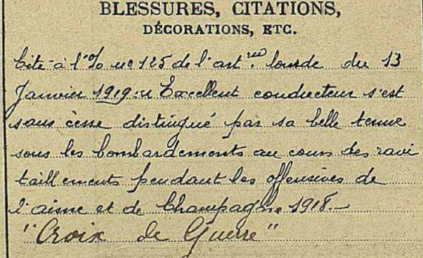 BLESSURES, CITATIONS,
DÉCORATIONS, ETC.
Cité à l'% nc 125 de l'artrie lourde du 13
Janvier 1919 :« Excellent conducteur s'est
sans cesse distingué par sa belle tenue
sous les bombardements au cours des ravi
taillements pendant les offensives de
l'aisne et de Champagne 1918.-
"Croix de Guerre"